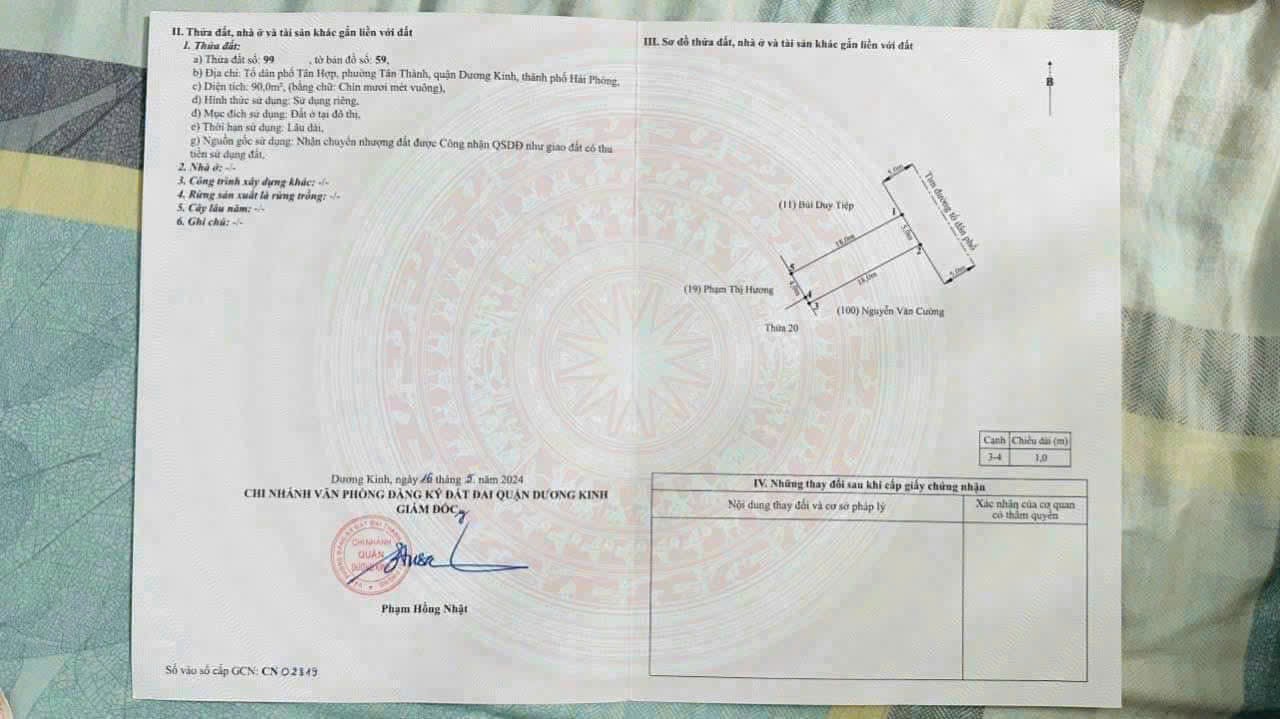 II. Thửa đất, nhà ở và tài sản khác gắn liền với đất
1. Thửa đất:
a) Thửa đất số: 99 , tờ bản đồ số: 59,
b) Địa chỉ: Tổ dân phố Tân Hợp, phường Tân Thành, quận Dương Kinh, thành phố Hải Phòng,
c) Diện tích: 90,0m², (bằng chữ: Chín mươi mét vuông),
d) Hình thức sử dụng: Sử dụng riêng,
đ) Mục đích sử dụng: Đất ở tại đô thị,
e) Thời hạn sử dụng: Lâu dài,
g) Nguồn gốc sử dụng: Nhận chuyển nhượng đất được Công nhận QSDĐ như giao đất có thu
tiền sử dụng đất,
2. Nhà ở: -/-
3. Công trình xây dựng khác: -/-
4. Rừng sản xuất là rừng trồng: -/-
5. Cây lâu năm: -/-
6. Ghi chú: -/-
Dương Kinh, ngày 16 tháng 5 năm 2024
CHI NHÁNH VĂN PHÒNG ĐĂNG KÝ ĐẤT ĐAI QUẬN DƯƠNG KINH
GIÁM ĐỐC
CHI NHÁNH
QUẬN
DƯƠNG KINH
Phạm Hồng Nhật
Số vào sổ cấp GCN: CN 02819
III. Sơ đồ thửa đất, nhà ở và tài sản khác gắn liền với đất
B
5,0m
Tim đường tổ dân phố
(11) Bùi Duy Tiệp
1
18,0m
5,0m
2
5
5,0m
18,0m
4,0m
(19) Phạm Thị Hương
4
3
(100) Nguyễn Văn Cường
Thửa 20
Cạnh Chiều dài (m)
3-4 1,0
IV. Những thay đổi sau khi cấp giấy chứng nhận
Nội dung thay đổi và cơ sở pháp lý
Xác nhận của cơ quan
có thẩm quyền